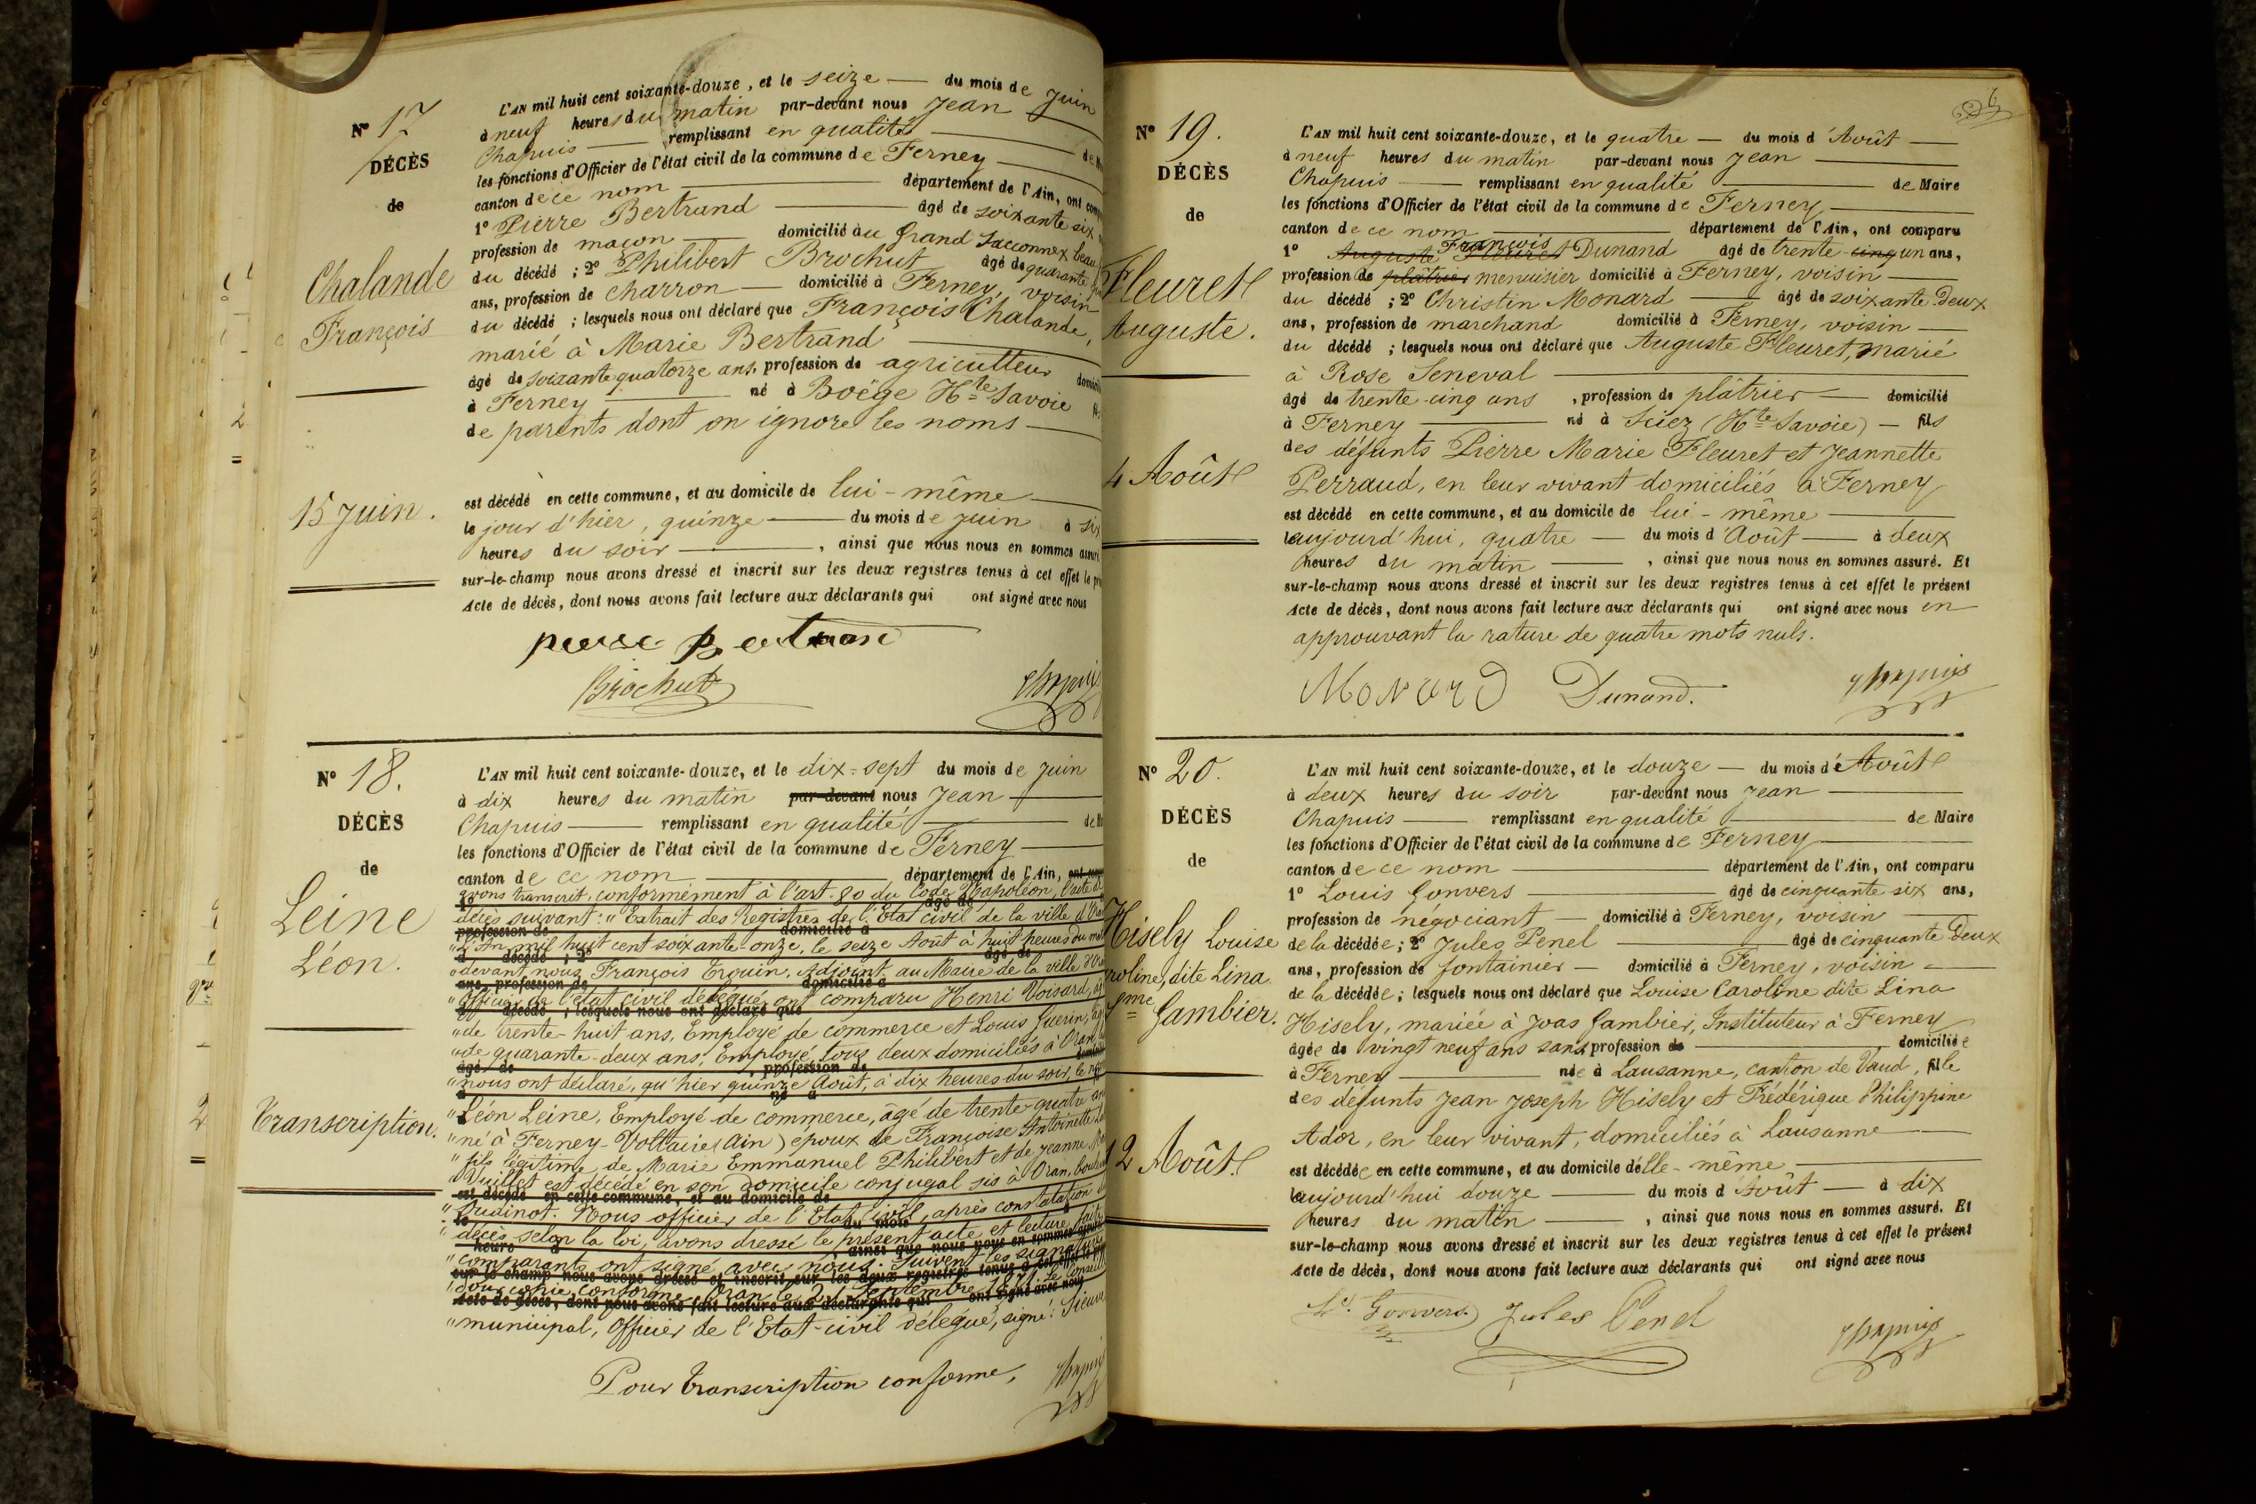 N° 17
DÉCÈS
de
Chalande
François
15 Juin.
L'AN mil huit cent soixante-douze, et le seize du mois de Juin
à neuf heures du matin par-devant nous Jean
Chapuis remplissant en qualité de
les fonctions d'Officier de l'état civil de la commune de Ferney
canton de ce nom département de l'Ain, ont
1° Pierre Bertrand âgé de soixante six
profession de maçon domicilié au Grand Saconnex, beau
du décédé ; 2° Philibert Brochut âgé de quarante
ans, profession de charron domicilié à Ferney, voisin
du décédé ; lesquels nous ont déclaré que François Chalande,
marié à Marie Bertrand
âgé de soixante quatorze ans, profession de agriculteur
à Ferney né à Boëge Hte Savoie
de parents dont on ignore les noms
est décédé en cette commune, et au domicile de lui-même
le jour d'hier, quinze du mois de Juin à six
heures du soir, ainsi que nous nous en sommes
sur-le-champ nous avons dressé et inscrit sur les deux registres tenus à cet effet le
Acte de décès, dont nous avons fait lecture aux déclarants qui ont signé avec nous
Brochut
Chapuis
N° 18.
DÉCÈS
de
Leine
Léon.
Transcription.
L'AN mil huit cent soixante-douze, et le dix-sept du mois de Juin
à dix heures du matin par-devant nous Jean
Chapuis remplissant en qualité de
les fonctions d'Officier de l'état civil de la commune de Ferney
canton de ce nom département de l'Ain,
avons transcrit, conformément à l'art. 80 du Code Napoléon, l'acte de
décès suivant : "Extrait des Registres de l'Etat civil de la ville d'
"L'An mil huit cent soixante-onze, le seize Août à huit heures du
"devant nous François Adjoint au Maire de la ville
"Officier de l'état civil délégué ont comparu Henri Voisard,
"de trente-huit ans, Employé de commerce et Louis Guerin,
"de quarante-deux ans, Employé, tous deux domiciliés à Oran,
"nous ont déclaré, qu'hier quinze Août, à dix heures du soir, le
"Léon Leine, Employé de commerce, âgé de trente-quatre
"né à Ferney-Voltaire (Ain) époux de Françoise Antoinette
"fils légitime de Marie Emmanuel Philibert et de Jeanne
"Vuillet est décédé en son domicile conjugal sis à Oran,
"Oudinot. Nous officier de l'Etat civil, après constatation
"décès selon la loi, avons dressé le présent acte et lecture faite
"comparants ont signé avec nous. Suivent les signatures
"Pour copie conforme, Oran le Septembre 1871. Le
"municipal, Officier de l'Etat-civil délégué, signé:
Pour transcription conforme,
Chapuis
6
N° 19.
DÉCÈS
de
Fleuret
Auguste.
4 Août
L'AN mil huit cent soixante-douze, et le quatre du mois d'Août
à neuf heures du matin par-devant nous Jean
Chapuis remplissant en qualité de Maire
les fonctions d'Officier de l'état civil de la commune de Ferney
canton de ce nom département de l'Ain, ont comparu
1° Auguste Fleuret François Dunand âgé de trente-cinq un ans,
profession de plâtrier menuisier domicilié à Ferney, voisin
du décédé ; 2° Christin Monard âgé de soixante-deux
ans, profession de marchand domicilié à Ferney, voisin
du décédé ; lesquels nous ont déclaré que Auguste Fleuret, marié
à Rose Seneval
âgé de trente-cinq ans, profession de plâtrier domicilié
à Ferney né à Sciez (Hte Savoie) fils
des défunts Pierre Marie Fleuret et Jeannette
Perraud, en leur vivant domiciliés à Ferney
est décédé en cette commune, et au domicile de lui-même
aujourd'hui, quatre du mois d'Août à deux
heures du matin, ainsi que nous nous en sommes assuré. Et
sur-le-champ nous avons dressé et inscrit sur les deux registres tenus à cet effet le présent
Acte de décès, dont nous avons fait lecture aux déclarants qui ont signé avec nous en
approuvant la rature de quatre mots nuls.
Monard Dunand. Chapuis
N° 20.
DÉCÈS
de
Hisely Louise
roline, dite Lina
Gambier.
12 Août.
L'AN mil huit cent soixante-douze, et le douze du mois d'Août
à deux heures du soir par-devant nous Jean
Chapuis remplissant en qualité de Maire
les fonctions d'Officier de l'état civil de la commune de Ferney
canton de ce nom département de l'Ain, ont comparu
1° Louis Gonvers âgé de cinquante six ans,
profession de négociant domicilié à Ferney, voisin
de la décédée ; 2° Jules Penel âgé de cinquante deux
ans, profession de fontainier domicilié à Ferney, voisin
de la décédée ; lesquels nous ont déclaré que Louise Caroline dite Lina
Hisely, mariée à Joas Gambier, Instituteur à Ferney
âgée de vingt neuf ans sans profession de domiciliée
à Ferney née à Lausanne, canton de Vaud, fille
des défunts Jean Joseph Hisely et Frédérique Philippine
Ador, en leur vivant, domiciliés à Lausanne
est décédée en cette commune, et au domicile d'elle-même
aujourd'hui douze du mois d'Août à dix
heures du matin, ainsi que nous nous en sommes assuré. Et
sur-le-champ nous avons dressé et inscrit sur les deux registres tenus à cet effet le présent
Acte de décès, dont nous avons fait lecture aux déclarants qui ont signé avec nous
Ls. Gonvers Jules Penel Chapuis